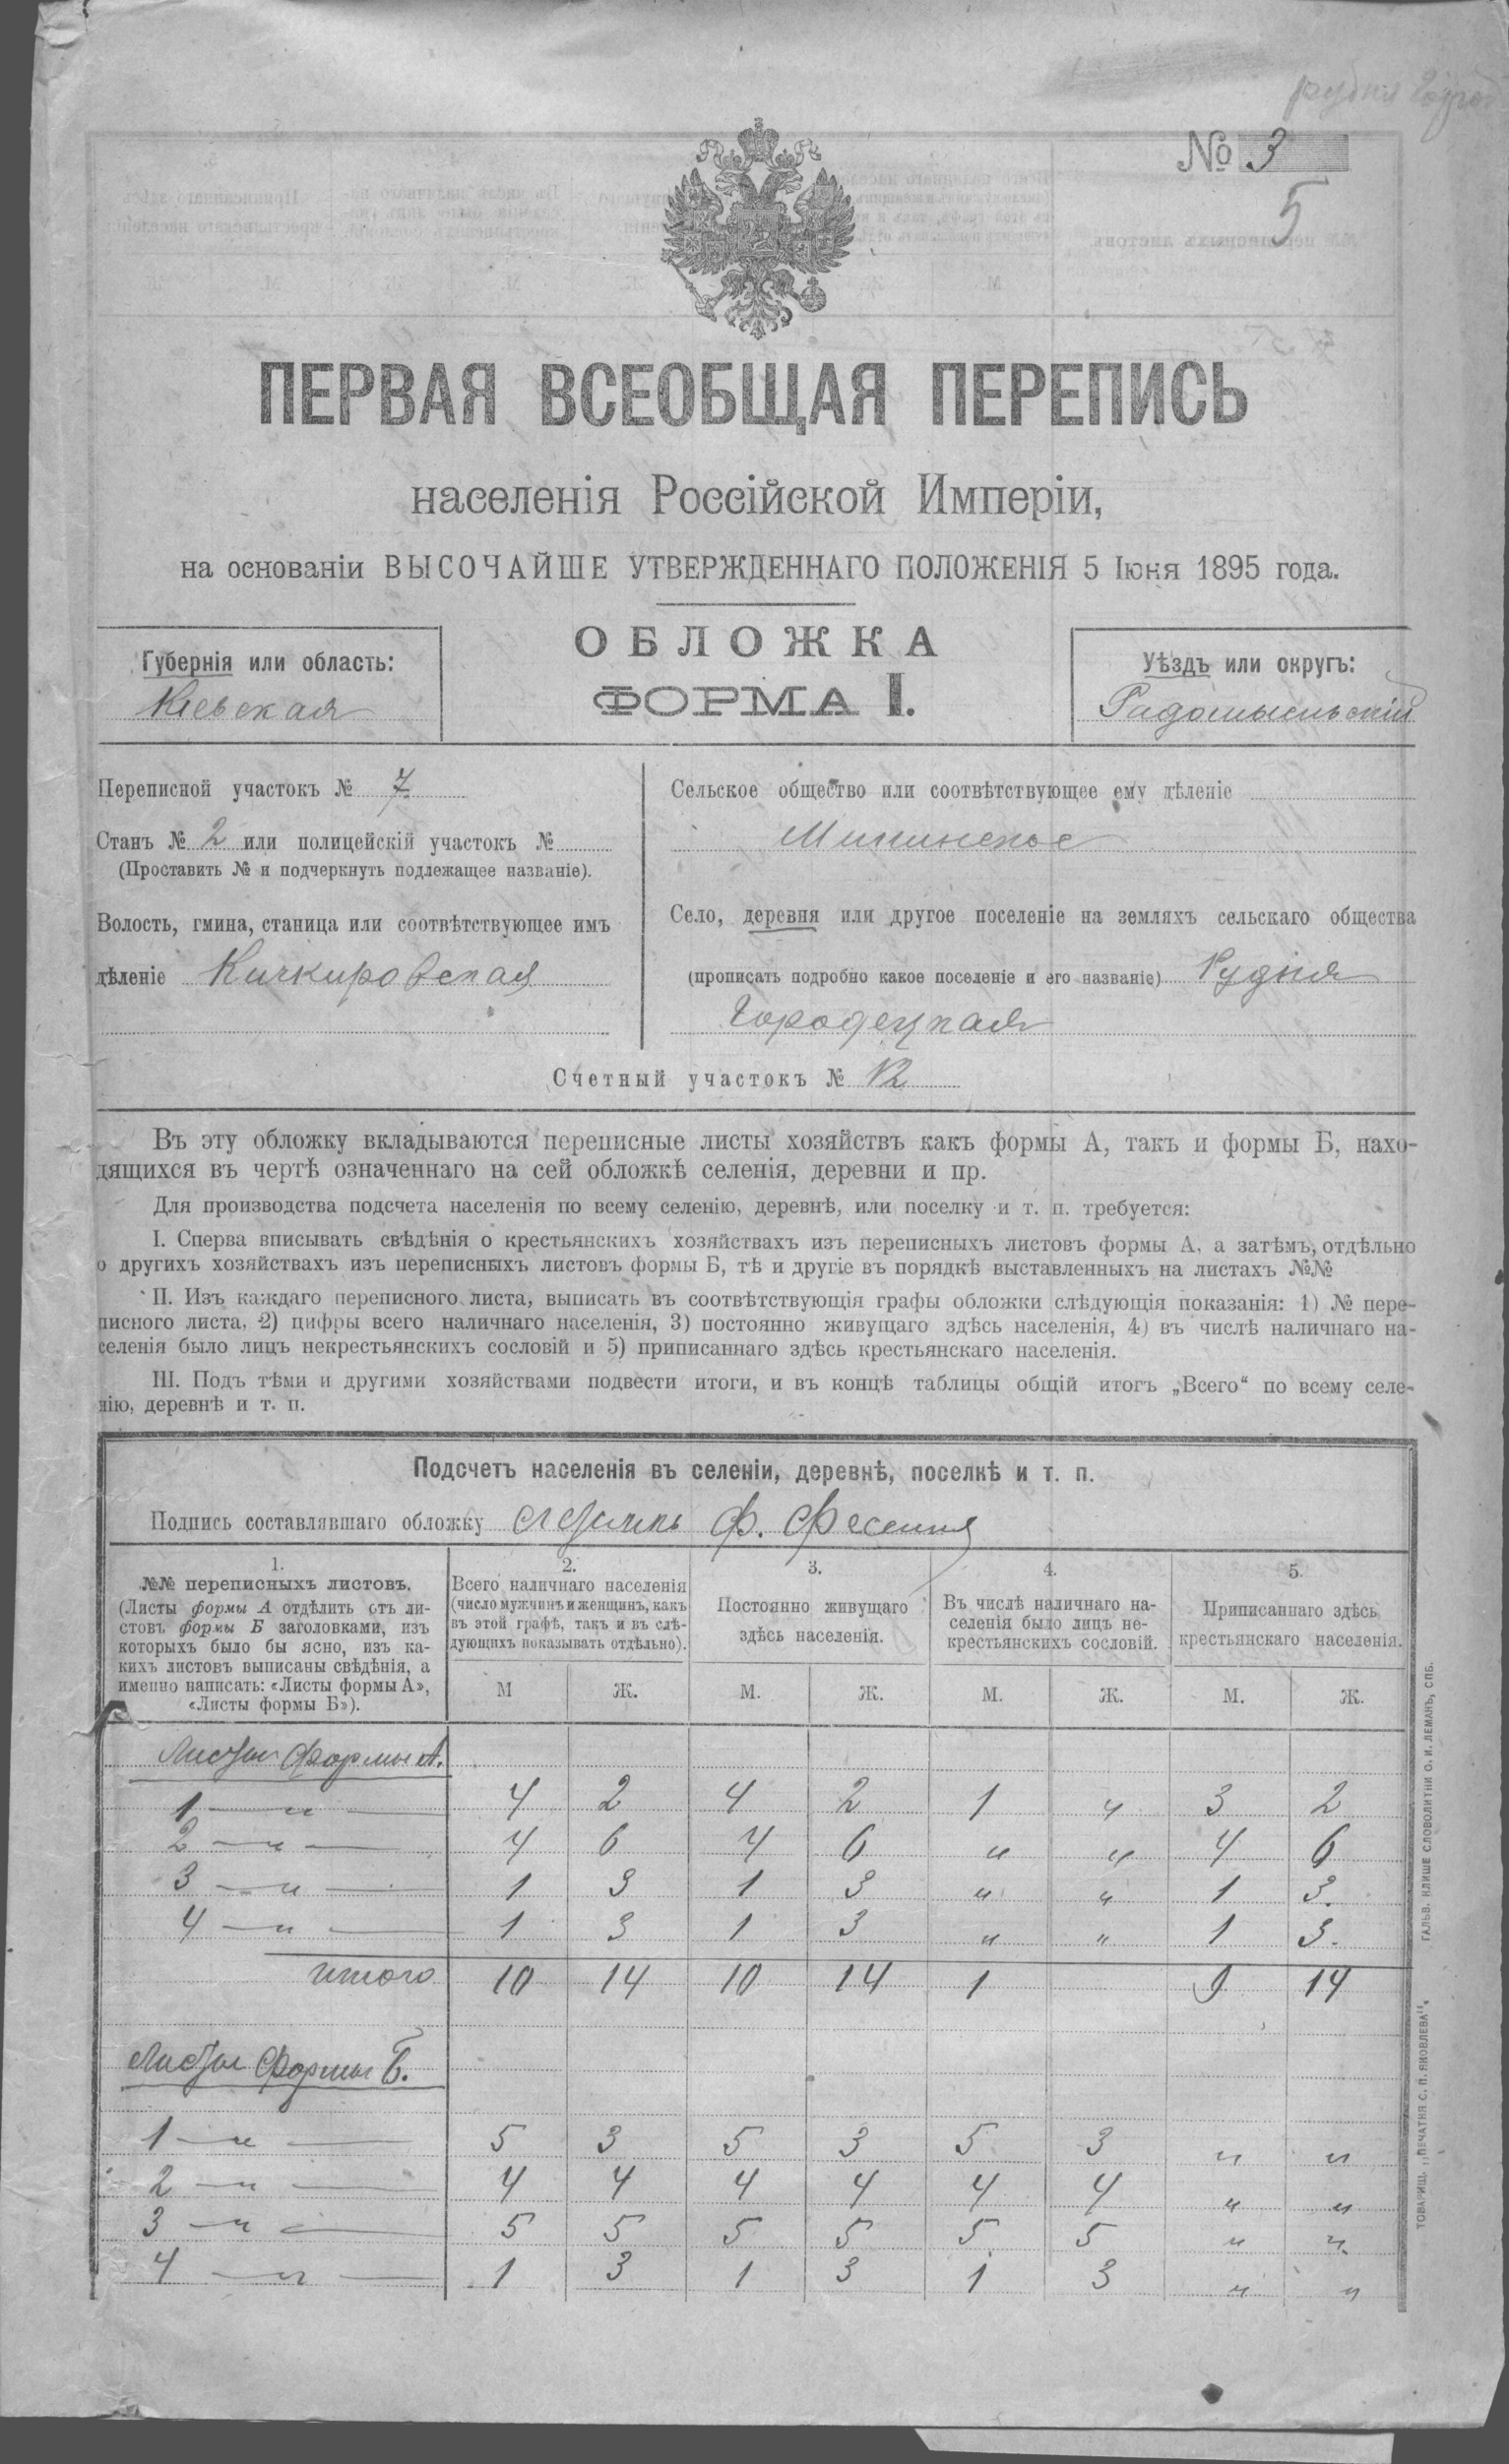 № 3
5
ПЕРВАЯ ВСЕОБЩАЯ ПЕРЕПИСЬ
населенія Россійской Имперіи,
на основаніи ВЫСОЧАЙШЕ УТВЕРЖДЕННАГО ПОЛОЖЕНІЯ 5 Іюня 1895 года.
ОБЛОЖКА
ФОРМА I.
Губернія или область:
Кіевская
Уѣздъ или округъ:
Радомысльскій
Переписной участокъ № 7
Станъ № 2 или полицейскій участокъ №
(Проставить № и подчеркнуть подлежащее названіе).
Волость, гмина, станица или соотвѣтствующее имъ
дѣленіе Кичкировская
Сельское общество или соотвѣтствующее ему дѣленіе
Мининское
Село, деревня или другое поселеніе на земляхъ сельскаго общества
(прописать подробно какое поселеніе и его названіе) Рудня
Городецкая
Счетный участокъ № 12
Въ эту обложку вкладываются переписные листы хозяйствъ какъ формы А, такъ и формы Б, нахо-
дящихся въ чертѣ означеннаго на сей обложкѣ селенія, деревни и пр.
Для производства подсчета населенія по всему селенію, деревнѣ, или поселку и т. п. требуется:
I. Сперва вписывать свѣдѣнія о крестьянскихъ хозяйствахъ изъ переписныхъ листовъ формы А, а затѣмъ, отдѣльно
о другихъ хозяйствахъ изъ переписныхъ листовъ формы Б, тѣ и другіе въ порядкѣ выставленныхъ на листахъ №№
II. Изъ каждаго переписного листа, выписать въ соотвѣтствующія графы обложки слѣдующія показанія: 1) № пере-
писного листа, 2) цифры всего наличнаго населенія, 3) постоянно живущаго здѣсь населенія, 4) въ числѣ наличнаго на-
селенія было лицъ некрестьянскихъ сословій и 5) приписаннаго здѣсь крестьянскаго населенія.
III. Подъ тѣми и другими хозяйствами подвести итоги, и въ концѣ таблицы общій итогъ „Всего“ по всему селе-
нію, деревнѣ и т. п.
Подсчетъ населенія въ селеніи, деревнѣ, поселкѣ и т. п.
Подпись составлявшаго обложку Ф.
1.
№№ переписныхъ листовъ.
(Листы формы А отдѣлить отъ ли-
стовъ формы Б заголовками, изъ
которыхъ было бы ясно, изъ ка-
кихъ листовъ выписаны свѣдѣнія, а
именно написать: «Листы формы А»,
«Листы формы Б»).
2.
Всего наличнаго населенія
(число мужчинъ и женщинъ, какъ
въ этой графѣ, такъ и въ слѣ-
дующихъ показывать отдѣльно).
3.
Постоянно живущаго
здѣсь населенія.
4.
Въ числѣ наличнаго на-
селенія было лицъ не-
крестьянскихъ сословій.
5.
Приписаннаго здѣсь
крестьянскаго населенія.
М Ж. М. Ж. М. Ж. М. Ж.
Листы формы А.
1 — „ — 4 2 4 2 1 „ 3 2
2 — „ — 4 6 4 6 „ „ 4 6
3 — „ — 1 3 1 3 „ „ 1 3.
4 — „ — 1 3 1 3 „ „ 1 3.
итого 10 14 10 14 1 9 14
Листы формы Б.
1 — „ — 5 3 5 3 5 3 „ „
2 — „ — 4 4 4 4 4 4 „ „
3 — „ — 5 5 5 5 5 5 „ „
4 — „ — 1 3 1 3 1 3 „ „
ТОВАРИЩ. „ПЕЧАТНЯ С. П. ЯКОВЛЕВА“. ГАЛЬВ. КЛИШЕ СЛОВОЛИТНИ О. И. ЛЕМАНЪ, СПБ.